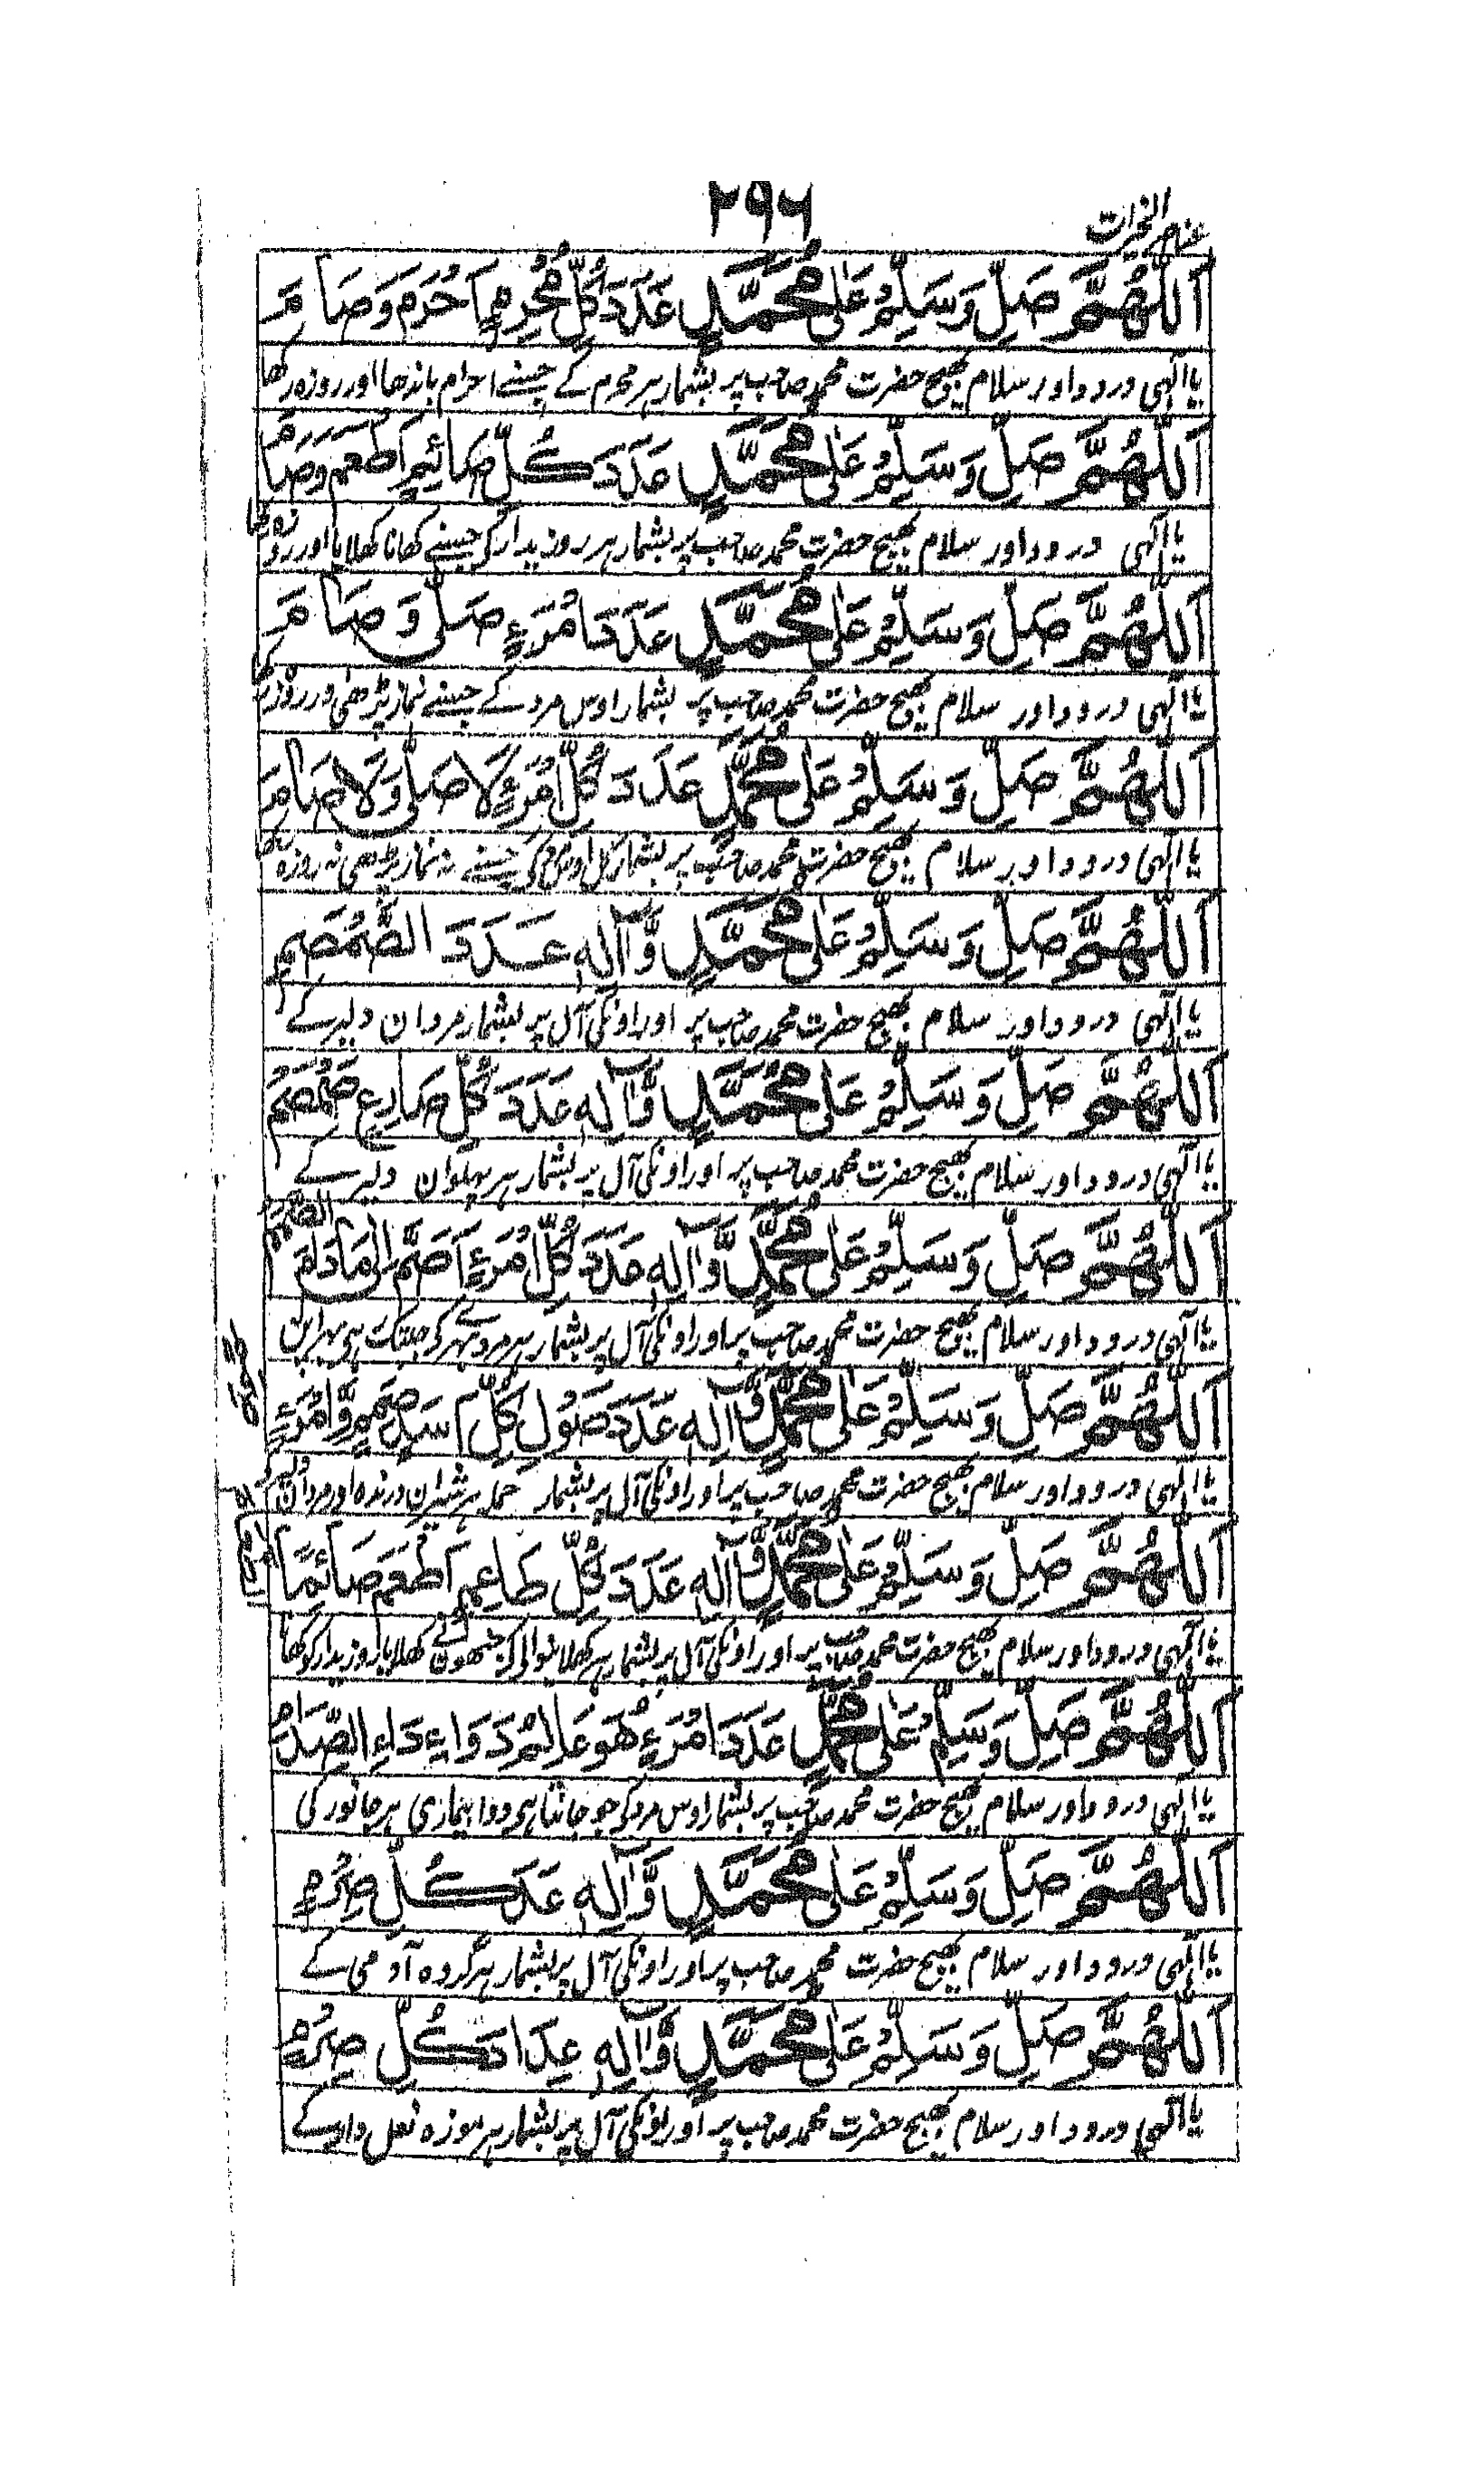 عناصر الخیرات
۲۹۶
اَللّٰهُمَّ صَلِّ وَسَلِّمْ عَلٰى مُحَمَّدٍ عَدَدَ كُلِّ مُحْرِمٍ اَحْرَمَ وَصَامَ
یا الٰہی درود اور سلام بھیج حضرت محمد صاحب پر بشمار ہر محرم کے جسنے احرام باندھا اور روزہ رکھا
اَللّٰهُمَّ صَلِّ وَسَلِّمْ عَلٰى مُحَمَّدٍ عَدَدَ كُلِّ صَائِمٍ اَطْعَمَ وَصَامَ
یا الٰہی درود اور سلام بھیج حضرت محمد صاحب پر بشمار ہر روزیدار کی جسنے کھانا کھلایا اور روزہ رکھا
اَللّٰهُمَّ صَلِّ وَسَلِّمْ عَلٰى مُحَمَّدٍ عَدَدَ امْرَءٍ صَلّٰى وَصَامَ
یا الٰہی درود اور سلام بھیج حضرت محمد صاحب پر بشمار اوس مرد کے جسنے نماز پڑھی ور روزہ رکھا
اَللّٰهُمَّ صَلِّ وَسَلِّمْ عَلٰى مُحَمَّدٍ عَدَدَ كُلِّ امْرَءٍ لَا صَلّٰى وَلَا صَامَ
یا الٰہی درود اور سلام بھیج حضرت محمد صاحب پر بشمار کل اوس مرد کی جسنے نہ نماز پڑھی نہ روزہ رکھا
اَللّٰهُمَّ صَلِّ وَسَلِّمْ عَلٰى مُحَمَّدٍ وَّاٰلِهٖ عَدَدَ الصَّمْصَمِ
یا الٰہی درود اور سلام بھیج حضرت محمد صاحب پر اور اونکی آل پر بشمار مردان دلیر کے
اَللّٰهُمَّ صَلِّ وَسَلِّمْ عَلٰى مُحَمَّدٍ وَّاٰلِهٖ عَدَدَ كُلِّ صَارِعٍ صَمْصَمٍ
یا الٰہی درود اور سلام بھیج حضرت محمد صاحب پر اور اونکی آل پر بشمار ہر پہلوان دلیر کے
اَللّٰهُمَّ صَلِّ وَسَلِّمْ عَلٰى مُحَمَّدٍ وَّاٰلِهٖ عَدَدَ كُلِّ امْرَءٍ اَصَمَّ اِلٰى مَادَامَ الصَّمَمُ
یا الٰہی درود اور سلام بھیج حضرت محمد صاحب پر اور اونکی آل پر بشمار ہر مرد بہرے کی جبتک رہی بہراپن
اَللّٰهُمَّ صَلِّ وَسَلِّمْ عَلٰى مُحَمَّدٍ وَّاٰلِهٖ عَدَدَ صَوْلِ كُلِّ اَسَدٍ صِمَمٍ وَّامْرَءٍ
یا الٰہی درود اور سلام بھیج حضرت محمد صاحب پر اور اونکی آل پر بشمار حملہ ہر شیران درندہ اور مردان دلیر کے
اَللّٰهُمَّ صَلِّ وَسَلِّمْ عَلٰى مُحَمَّدٍ وَّاٰلِهٖ عَدَدَ كُلِّ طَاعِمٍ اَطْعَمَ صَائِمًا
یا الٰہی درود اور سلام بھیج حضرت محمد صاحب پر اور اونکی آل پر بشمار ہر کھلانیوالی کی جنھون نے کھلایا روزیدار کو کھانا
اَللّٰهُمَّ صَلِّ وَسَلِّمْ عَلٰى مُحَمَّدٍ عَدَدَ امْرَءٍ هُوَ عَالِمُ دَوَاءِ دَاءِ الصِّدَامِ
یا الٰہی درود اور سلام بھیج حضرت محمد صاحب پر بشمار اوس مرد کی جو جانتا ہی دوا بیماری ہر جانور کی
اَللّٰهُمَّ صَلِّ وَسَلِّمْ عَلٰى مُحَمَّدٍ وَّاٰلِهٖ عَدَدَ كُلِّ صِرْمٍ
یا الٰہی درود اور سلام بھیج حضرت محمد صاحب پر اور اونکی آل پر بشمار ہر گروہ آدمی کے
اَللّٰهُمَّ صَلِّ وَسَلِّمْ عَلٰى مُحَمَّدٍ وَّاٰلِهٖ عِدَادَ كُلِّ صِرْمٍ
یا الٰہی درود اور سلام بھیج حضرت محمد صاحب پر اور اونکی آل پر بشمار ہر موزہ نعل دار کے